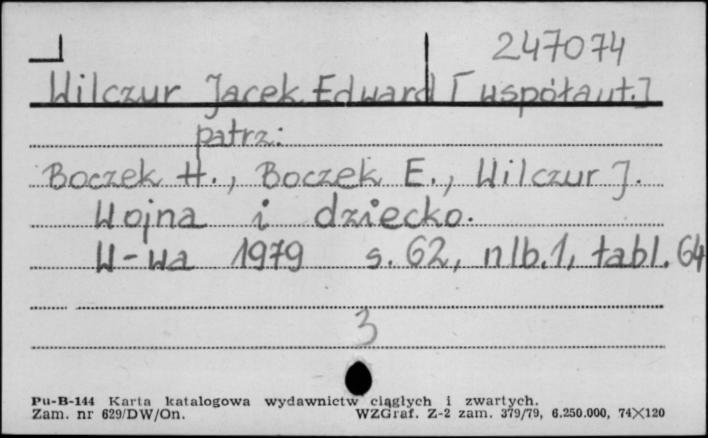 247074
Wilczur Jacek Edward [współaut.]
patrz:
Boczek H., Boczek E., Wilczur J.
Wojna i dziecko.
W-wa 1979 s. 62, nlb.1, tabl. 64
3
Pu-B-144 Karta katalogowa wydawnictw ciągłych i zwartych.
Zam. nr 629/DW/On. WZGraf. Z-2 zam. 379/79, 6.250.000, 74×120